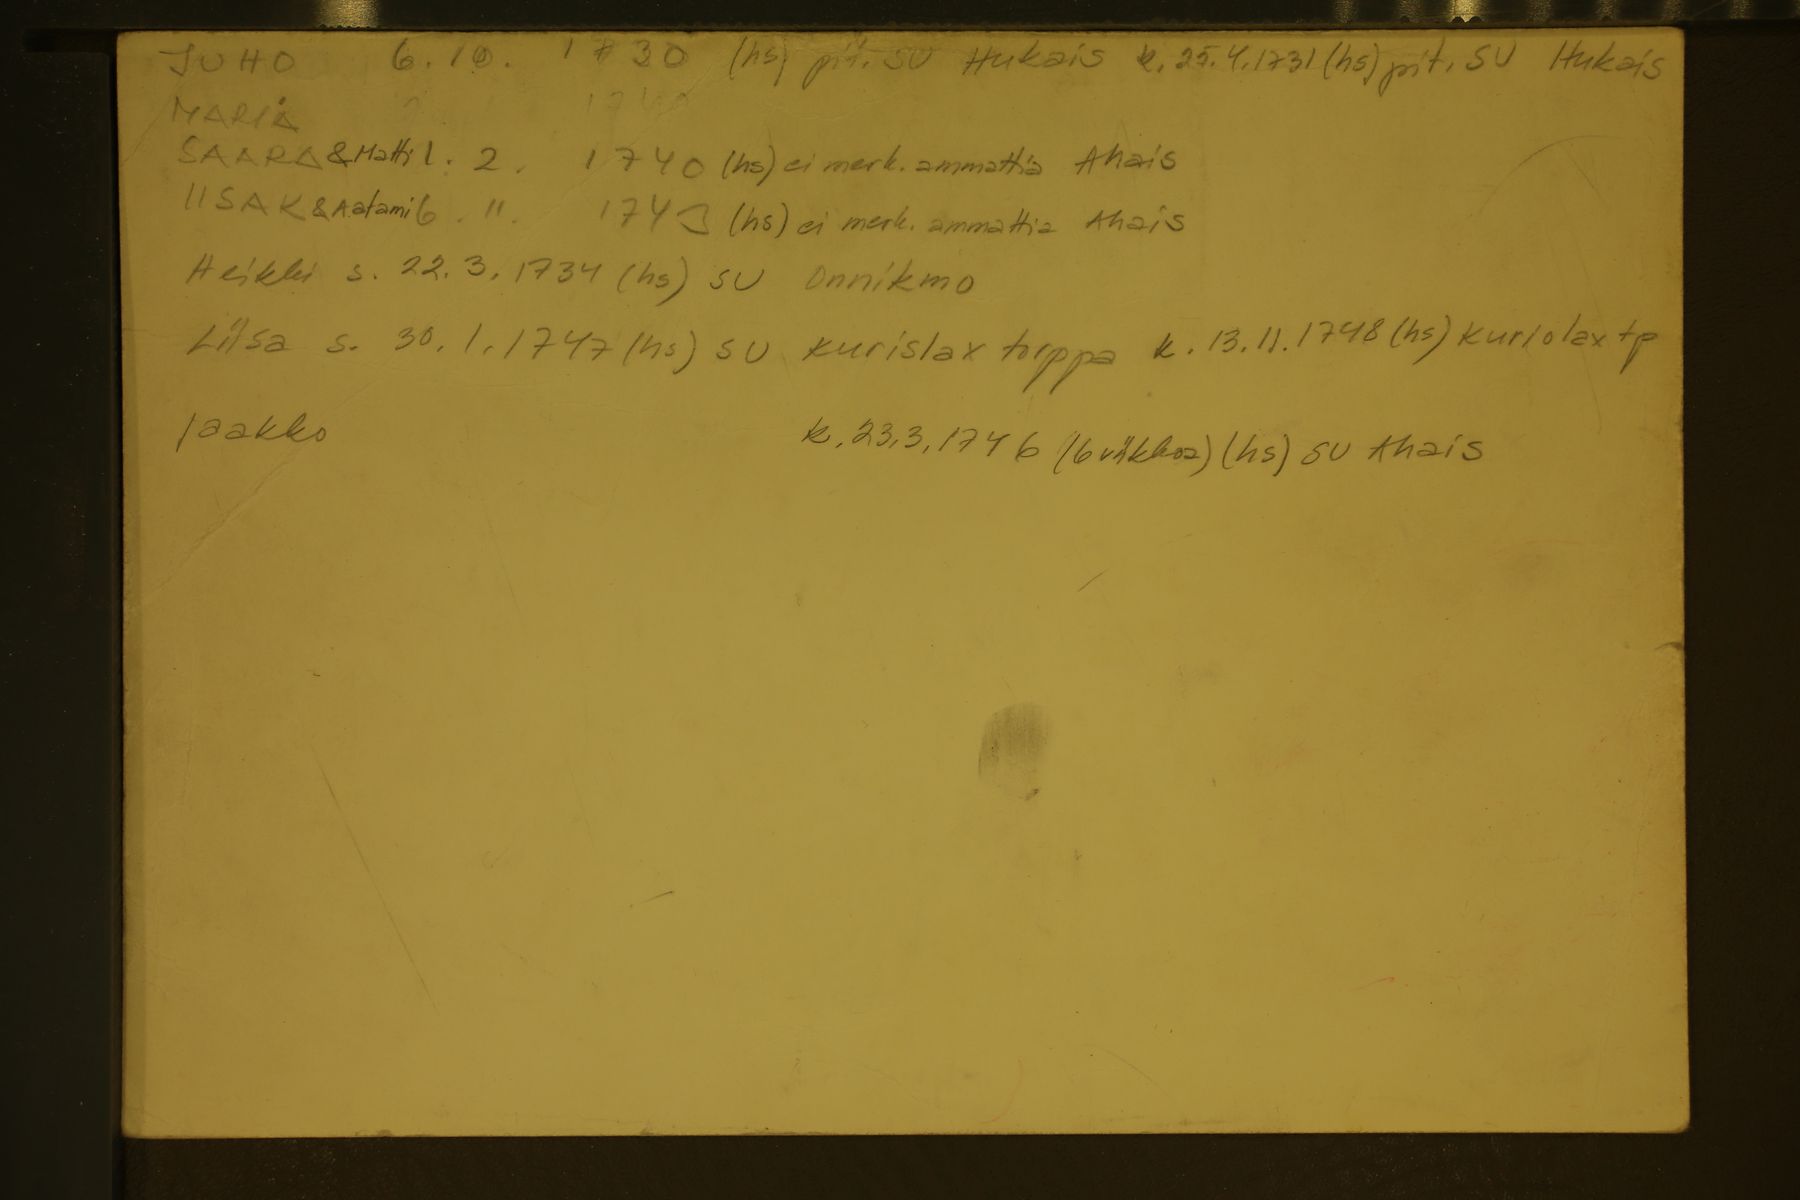 JUHO 6.10. 1730 (hs) pit. SU Hukais k. 25.4.1731 (hs) pit. SU Hukais
MARIA 1740
SAARA & Matti 1. 2. 1740 (hs) ei merk. ammattia Ahais
IISAK & Aatami 6. 11. 1743 (hs) ei merk. ammattia Ahais
Heikki s. 22.3.1734 (hs) SU Onnikmo
Liisa s. 30.1.1747 (hs) SU Kurislax torppa k. 13.11.1748 (hs) Kuriolax tp
Jaakko k. 23.3.1746 (6 viikkoa) (hs) SU Ahais